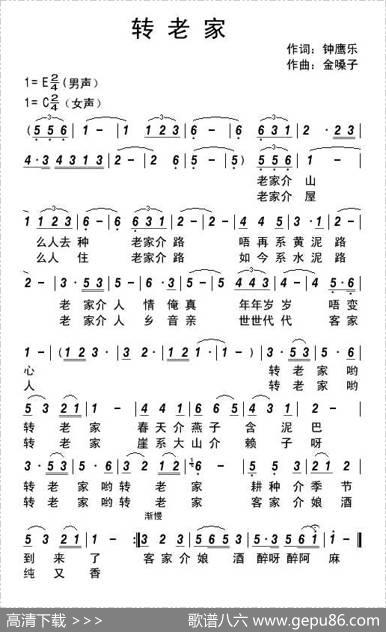 转老家
作词：钟鹰乐
作曲：金嗓子
1=E 2/4 (男声)
1=C 2/4 (女声)
(5 5 6 | 1 - | 1 1 2 3 | 6 - | 6 - | 6 3 1 | 2 - | 2· 3 3 |
4·3 4 3 1 3 | 2 - | 2 6 | 5 - | 5) | 5 5 6 | 1 - |
老家介 山
老家介 屋
1 1 2 3 | 6 - | 6 6 3 1 | 2 - | 2 4 4 5 | 3· 1 | 2 - |
么人去 种 老家介 路 唔 再 系 黄 泥 路
么人 住 老家介 路 如 今 系 水 泥 路
2 - | 3· 5 3 | 5· 6 | 5 3 2 1 | 2 - | 4 4 3 | 4 - | 5· 6 |
老 家介 人 情 俺 真 年年岁 岁 唔 变
老 家介 人 乡 音 亲 世世代 代 客 家
1 - | (1 2 3 | 3 2 | 1 2 1 | 6 - | 1 - | 1 -) | 3· 5 3 | 5· 6 |
心 转 老家 哟
人 转 老家 哟
5 3 2 1 | 1 - | 4 4 1 | 6 6 5 | 4 5 1 | 2 - |
转 老 家 春 天 介 燕 子 含 泥 巴
转 老 家 崖 系 大 山 介 赖 子 呀
3· 5 3 | 5· 6 | 3 2 1 2 | 6 - | 5 5 3 | 2 2 1 |
转 老家 哟 转 老 家 耕 种 介 季 节
转 老家 哟 转 老 家 客 家 介 娘 酒
渐慢
5 3 2 1 | 1 - :| 3 2 3 | 5 6 5 3 | 5· 3 5 6 1 | 1 - ‖
到 来 了 客 家 介 娘 酒 醉呀 醉阿 麻
纯 又 香
高清下载 >>>
歌谱八六 www.gepu86.com